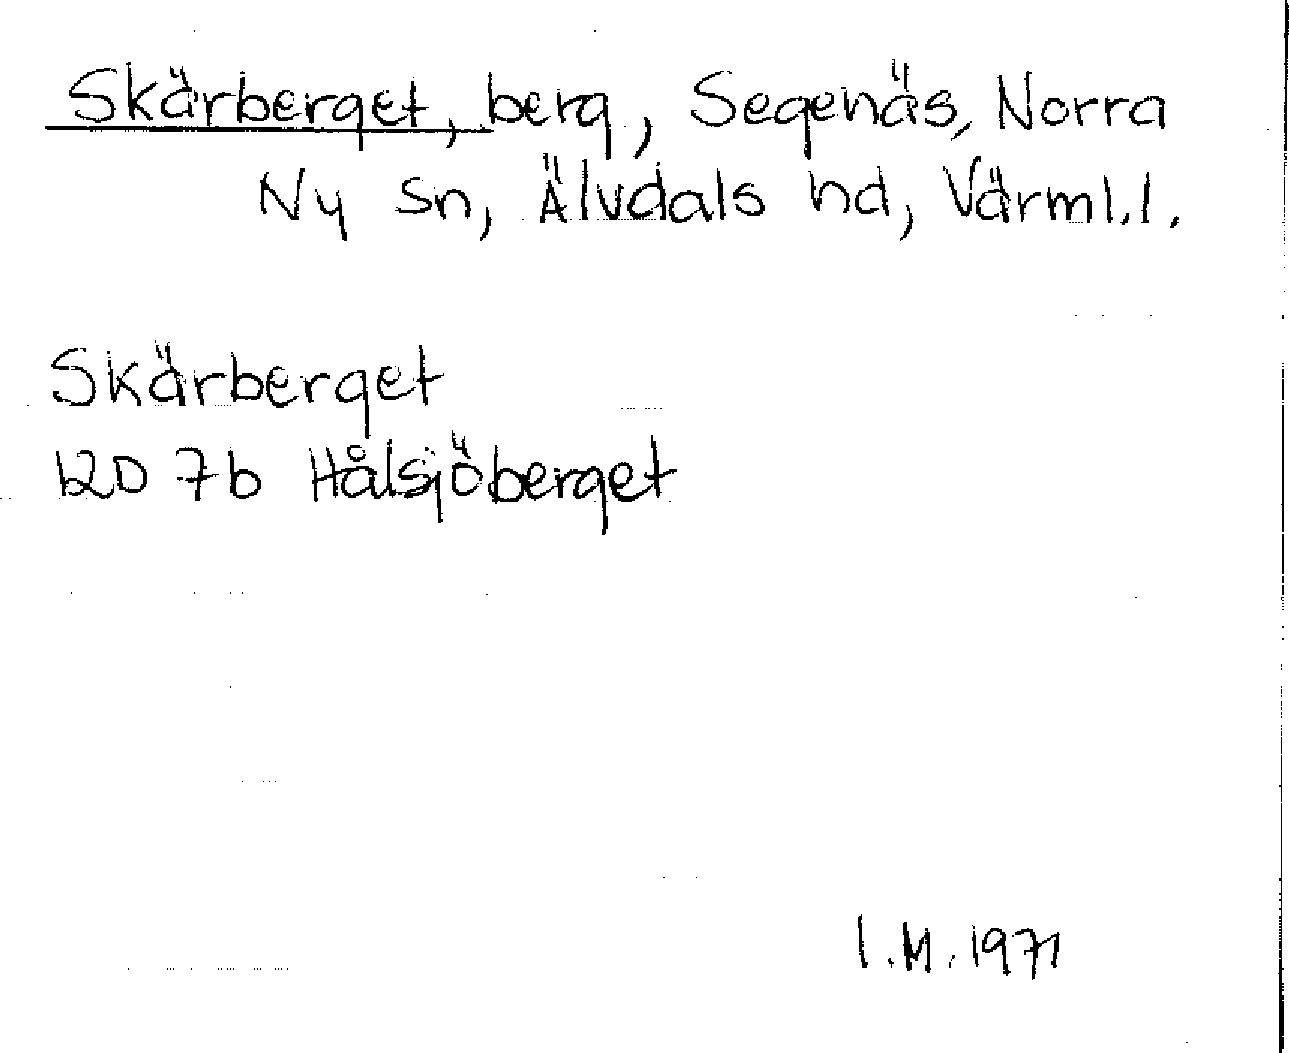 Skärberget, berg, Segenäs, Norra
Ny Sn, Älvdals hd, Värml.l.
Skärberget
12D 7b Hålsjöberget
I.M. 1971